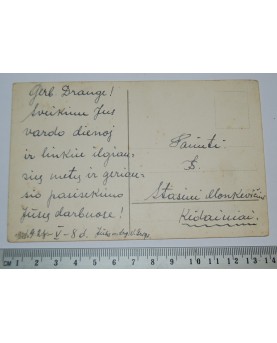 Gerb. Drauge!
Sveikinu Jus
vardo dienoj
ir linkiu ilgiau-
sių metų ir geriau-
sio pasisekimo
Jūsų darbuose!
V - 8 d.
Ponui
S.
Stasiui Monkevičiui
Kėdainiai.
1 2 3 4 5 6 7 8 9 10 11 12 13 14